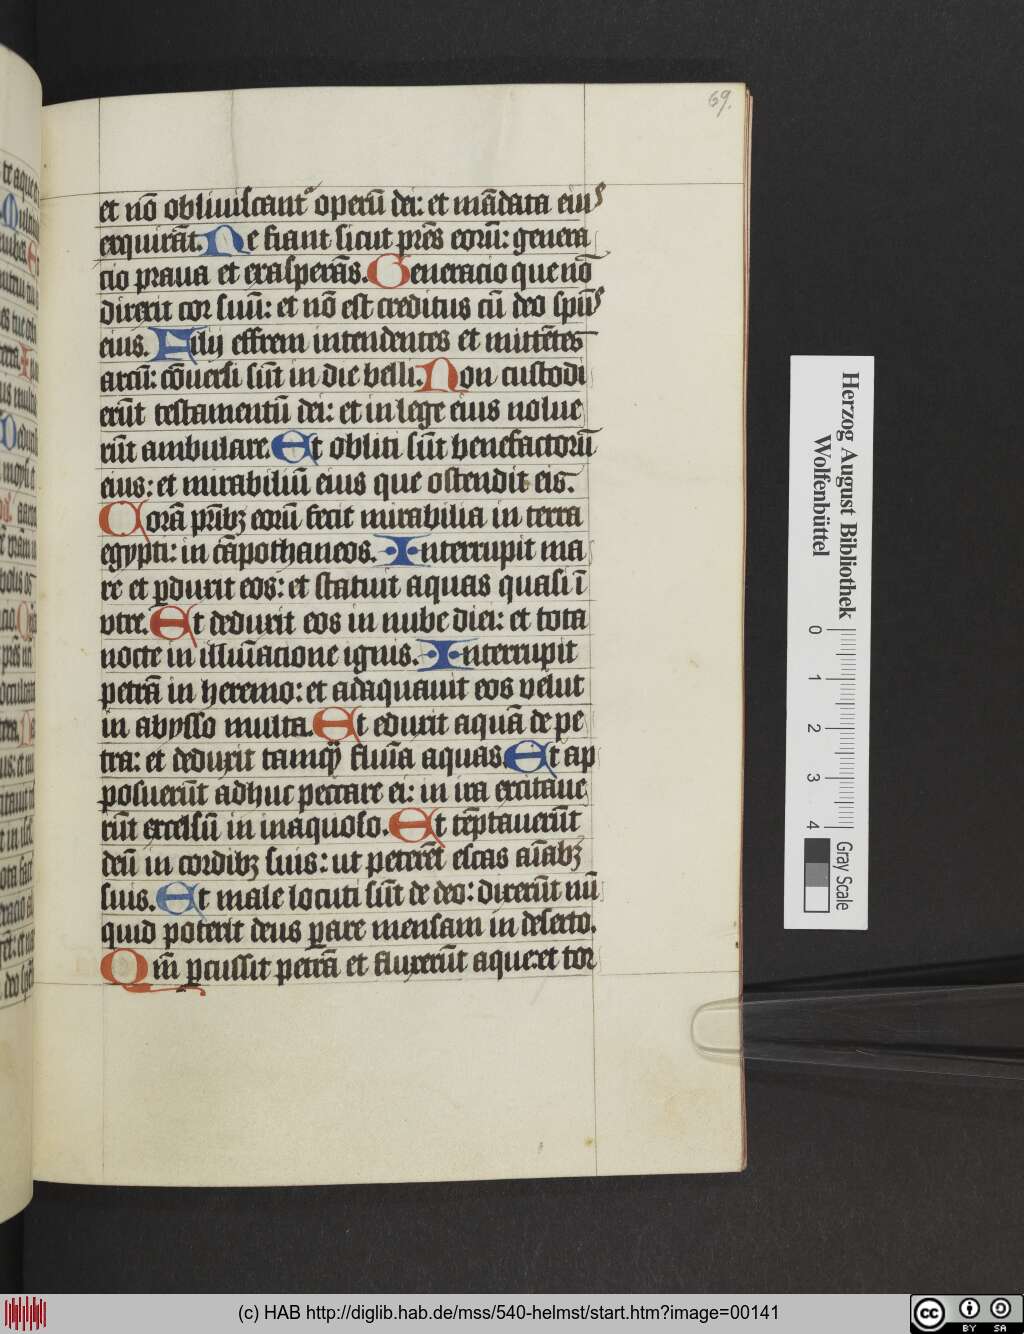 69.
et nō obliuiſcant᷑ operū dei: et mādata eiuſ
exquirāt. Ne fiant ſicut pr̄es eorū: genera
cio praua et exaſperās. Generacio que nō
direxit cor ſuū: et nō eſt creditus cū deo ſpūſ
eius. Filij effrem intendentes et mittētes
arcū: cōuerſi ſūt in die belli. Non cuſtodi
erūt teſtamentū dei: et in lege eius nolue
rūt ambulare. Et obliti ſūt benefactorū
eius: et mirabiliū eius que oſtendit eis.
Corā prībꝫ eorū fecit mirabilia in terra
egypti: in cāpo thaneos. Interrupit ma
re et ꝑduxit eos: et ſtatuit aquas quaſi ī
vtre. Et deduxit eos in nube diei: et tota
nocte in illuīacione ignis. Interrupit
petrā in heremo: et adaquauit eos velut
in abyſſo multa. Et eduxit aquā de pe
tra: et deduxit tamqͣ̄ fluīa aquas. Et ap
poſuerūt adhuc peccare ei: in ira excitaue
rūt excelſū in inaquoſo. Et tēptauerūt
deū in cordibꝫ ſuis: ut peterēt eſcas aīabꝫ
ſuis. Et male locuti ſūt de deo: dixerūt nū
quid poterit deus ꝑare menſam in deſerto.
Qm̄ ꝑcuſſit petrā et fluxerūt aque: et tor
Herzog August Bibliothek
Wolfenbüttel
0 1 2 3 4
Gray Scale
(c) HAB http://diglib.hab.de/mss/540-helmst/start.htm?image=00141
cc BY SA